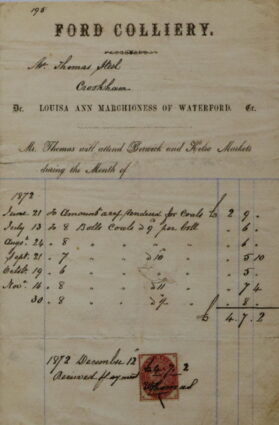 198
FORD COLLIERY.
Mr. Thomas
Crookham
Dr. LOUISA ANN MARCHIONESS OF WATERFORD. Cr.
Mr. Thomas will attend Berwick and Kelso Markets
during the Month of
1872
June 21 To Amount as rendered for Coals £ 2 9 "
July 13 To 8 Bolls Coals @ 9 per boll " 6 "
Augt. 24 " 8 " " " " 6 "
Sept. 21 " 7 " " @ 10 " 5 10
Octob. 19 " 6 " " " " 5 "
Novr. 16 " 8 " " @ 11 " 7 4
30 " 8 " " " 8 "
£ 4. 7. 2
1872 December 12
Received payment £4. 7. 2
Thomas